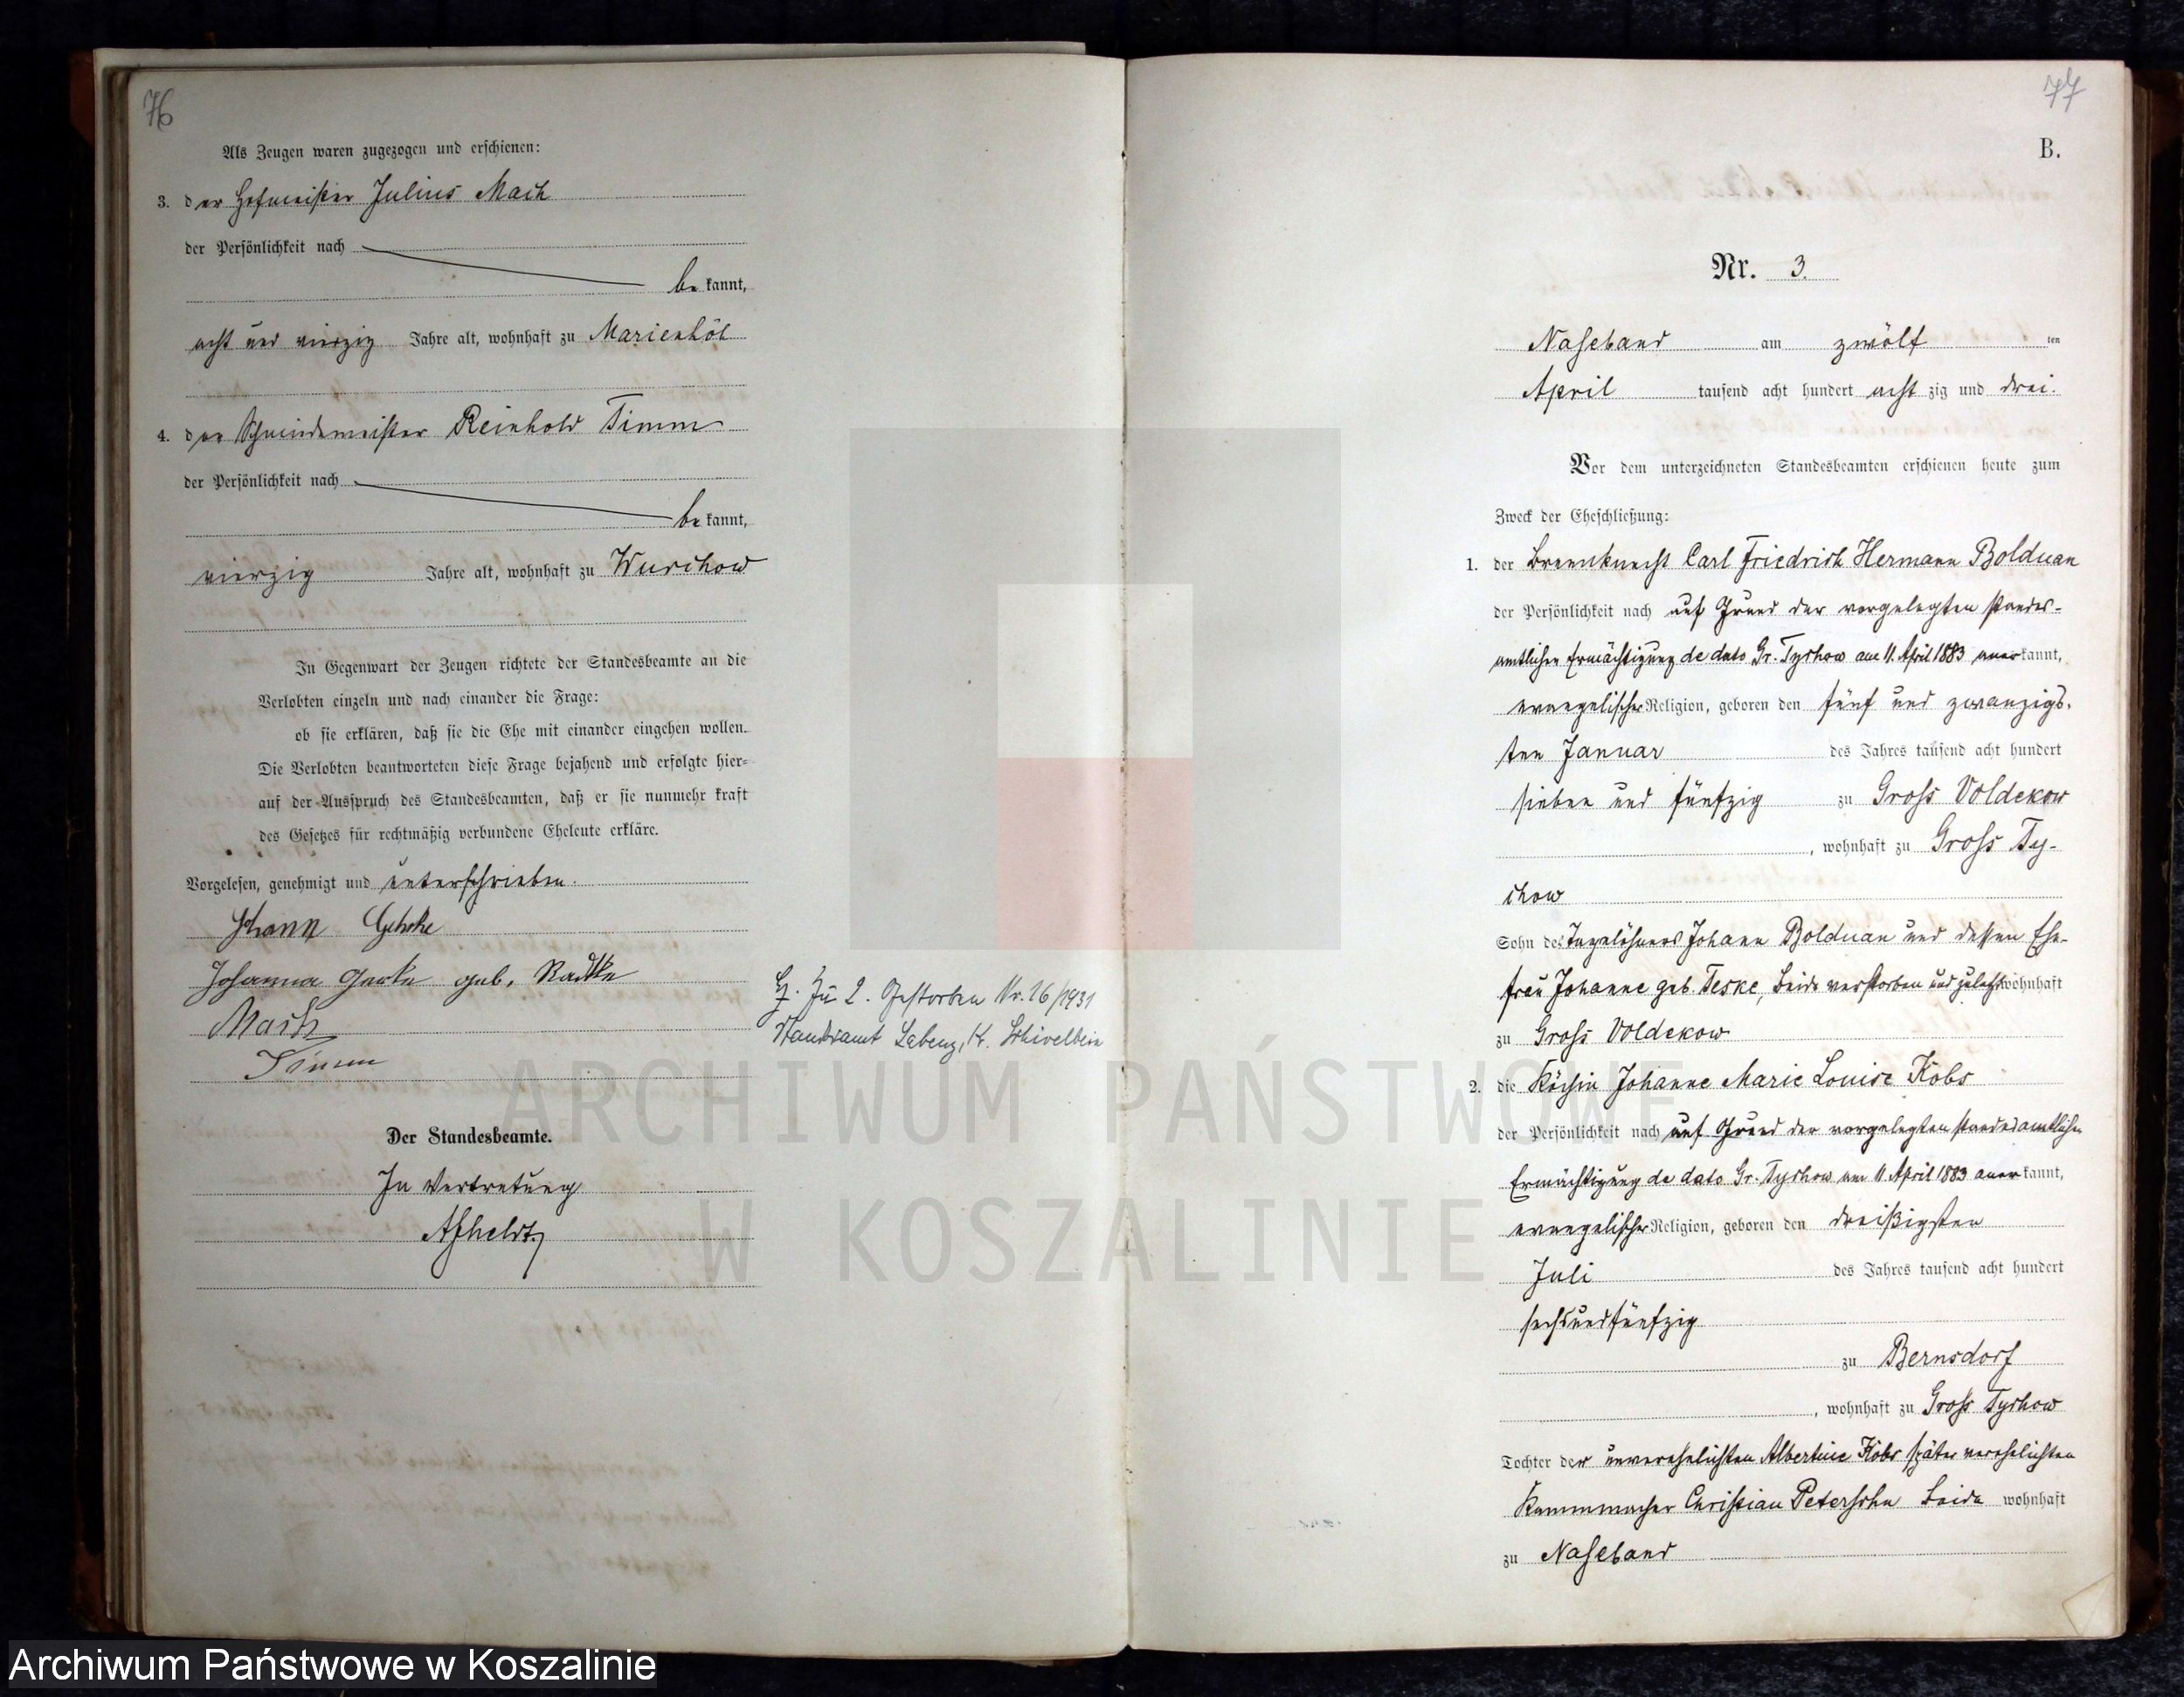 76
Als Zeugen waren zugezogen und erschienen:
3. der Hofmeister Julius Mach
der Persönlichkeit nach
bekannt,
acht und vierzig Jahre alt, wohnhaft zu Marienhöh
4. der Schmiedemeister Reinhold Timm
der Persönlichkeit nach
bekannt,
vierzig Jahre alt, wohnhaft zu Wurchow
In Gegenwart der Zeugen richtete der Standesbeamte an die
Verlobten einzeln und nach einander die Frage:
ob sie erklären, daß sie die Ehe mit einander eingehen wollen.
Die Verlobten beantworteten diese Frage bejahend und erfolgte hier=
auf der Ausspruch des Standesbeamten, daß er sie nunmehr kraft
des Gesetzes für rechtmäßig verbundene Eheleute erkläre.
Vorgelesen, genehmigt und unterschrieben.
Johann Gehrke
Johanna geb. Radtke
Mach
Timm
H. Zu 2. Gestorben Nr. 16/1931
Standesamt Labenz, Kr. Schivelbein
Der Standesbeamte.
In Vertretung
77
B.
Nr. 3.
Naseband am zwölften
April tausend acht hundert achtzig und drei.
Vor dem unterzeichneten Standesbeamten erschienen heute zum
Zweck der Eheschließung:
1. der Brennknecht Carl Friedrich Hermann Bolduan
der Persönlichkeit nach auf Grund der vorgelegten standes-
amtlichen Ermächtigung de dato Gr. Tychow am 11. April 1883 anerkannt,
evangelischer Religion, geboren den fünf und zwanzigs-
ten Januar des Jahres tausend acht hundert
sieben und fünfzig zu Gross Voldekow
, wohnhaft zu Gross Ty-
chow
Sohn des Tagelöhners Johann Bolduan und dessen Ehe-
frau Johanne geb. Teske, beide verstorben und zuletzt wohnhaft
zu Gross Voldekow
2. die Köchin Johanne Marie Louise Kobs
der Persönlichkeit nach auf Grund der vorgelegten standesamtlichen
Ermächtigung de dato Gr. Tychow am 11 April 1883 anerkannt,
evangelischer Religion, geboren den dreißigsten
Juli des Jahres tausend acht hundert
sechsundfünfzig
zu Bernsdorf
, wohnhaft zu Gross Tychow
Tochter der unverehelichten Albertine Kobs später verehelichten
Kammmacher Christian Petersohn beide wohnhaft
zu Naseband
ARCHIWUM PAŃSTWOWE
W KOSZALINIE
Archiwum Państwowe w Koszalinie